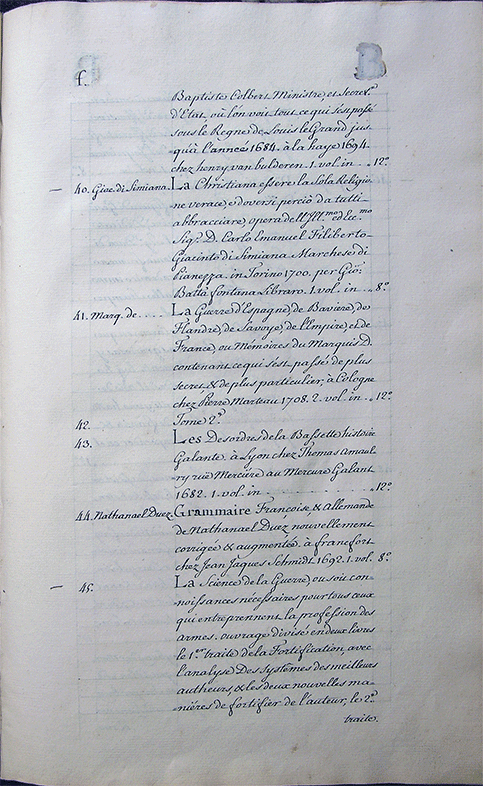 f.
Baptiste Colbert Ministre et Secret.re
d'Etat, où l'on voit tout ce qui s'est passé
sous le Regne de Louis le Grand jus-
qu'à l'année 1684. à la haye 1694.
chez henry van bulderen. 1. vol. in .. 12.°
– 40. Gioe. di Simiana. La Christiana essere la Sola Religio-
ne verace, e doversi perciò da tutti
abbracciare, opera dell'Ill.mo ed Ec.mo
Sig.r D. Carlo Emanuel Filiberto
Giacinto di Simiana Marchese di
Pianezza. in Torino 1700. per Gio:
Batta fontana Libraro. 1. vol. in ... 8.°
41. Marq. de ..... La Guerre d'Espagne, de Baviere, de
Flandre, de Savoye, de l'Empire, et de
France, ou Mémoires du Marquis D.
contenant ce qui s'est passé de plus
secret & de plus particulier, à Cologne
chez Pierre Marteau 1708. 2. vol. in .. 12.°
42. Tome 2.d
43. Les Desordres de la Bassette, histoire
Galante. à Lyon chez Thomas Amaul-
ry ruë Merciere au Mercure Galant
1682. 1. vol. in .......... 12.°
44. Nathanael Duez. Grammaire Francoise & Allemande
de Nathanael Duez nouvellement
corrigée & augmentée. à francfort
chez Jean Jaques Schmidt 1692. 1. vol. 8.°
– 45. La Science de la Guerre, ou soit con-
noissances nécessaires pour tous ceux
qui entreprennent la profession des
armes. ouvrage divisé en deux livres
le 1.er traite de la Fortification, avec
l'analyse Des systèmes des meilleurs
autheurs, & les deux nouvelles ma-
nières de fortifier de l'auteur, le 2.d
traite.